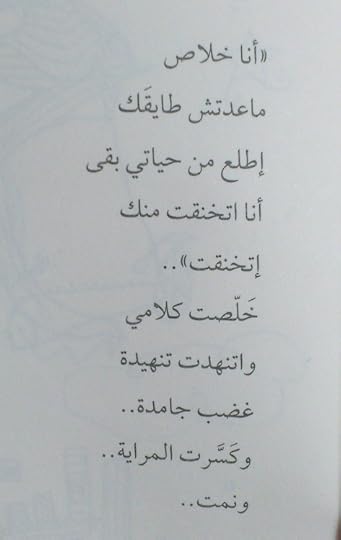 «أنا خلاص
ماعدتش طايقَك
إطلع من حياتي بقى
أنا اتخنقت منك
إتخنقت»..
خَلّصت كلامي
واتنهدت تنهيدة
غضب جامدة..
وكَسَّرت المراية..
ونمت..